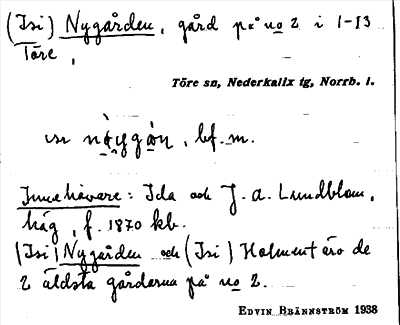 (Isi) Nygården, gård på no 2 i 1-13
Töre,
Töre sn, Nederkalix tg, Norrb. l.
bf. m.
Innehavare: Ida och J. A. Lundblom,
häg, f. 1870 kb.
(Isi) Nygården och (Isi) Holment äro de
2 äldsta gårdarna på no 2.
EDVIN BRÄNNSTRÖM 1938